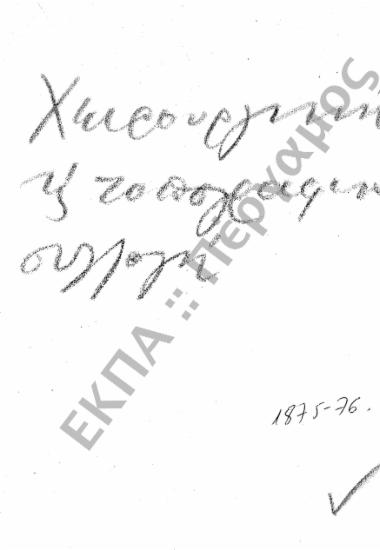 Χειρουργική
ή τοπογραφική
συλλογή
1875-76.
ΕΚΠΑ :: Πέργαμος